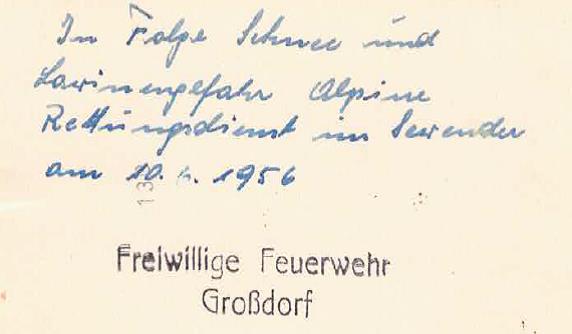 In Folge Schnee und
Lavinengefahr Alpine
Rettungsdienst im
am 10. 1956
Freiwillige Feuerwehr
Großdorf